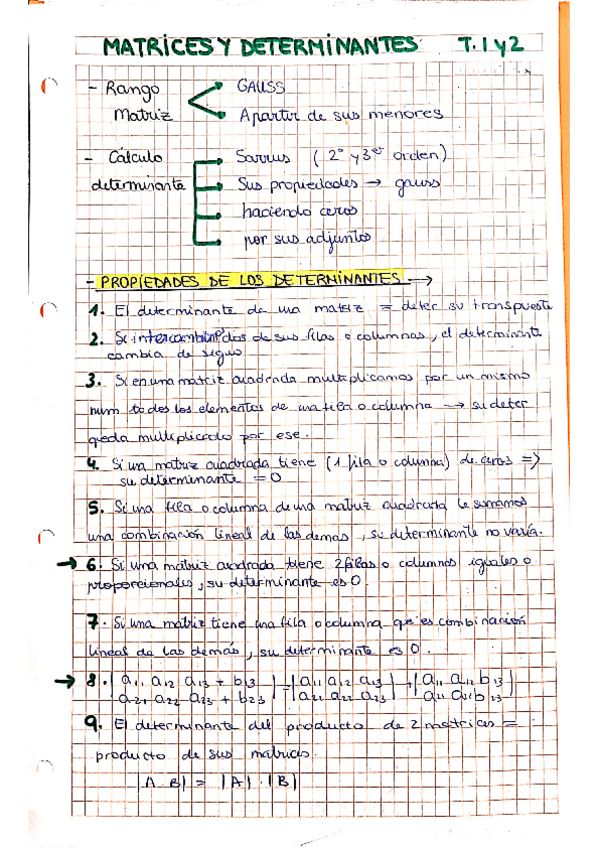 MATRICES Y DETERMINANTES T. 1 y 2
- Rango Matriz
GAUSS
A partir de sus menores
- Cálculo determinante
Sarrus ( 2º y 3er orden)
Sus propiedades → gauss
haciendo ceros
por sus adjuntos
- PROPIEDADES DE LOS DETERMINANTES →
1. El determinante de una matriz = deter su transpuesta
2. Si intercambian dos de sus filas o columnas, el determinante
cambia de signo
3. Si en una matriz cuadrada multiplicamos por un mismo
num todos los elementos de una fila o columna → su deter
queda multiplicado por ese.
4. Si una matriz cuadrada tiene (1 fila o columna) de ceros =>
su determinante = 0
5. Si una fila o columna de una matriz cuadrada le sumamos
una combinación lineal de las demas, su determinante no varía.
→ 6. Si una matriz cuadrada tiene 2 filas o columnas iguales o
proporcionales, su determinante es 0
7. Si una matriz tiene una fila o columna que es combinación
lineal de las demás, su determinante es 0.
→ 8. | a11 a12 a13 + b13 | = | a11 a12 a13 | + | a11 a12 b13 |
| a21 a22 a23 + b23 | | a21 a22 a23 | | a21 a22 b23 |
9. El determinante del producto de 2 matrices =
producto de sus matrices.
|A·B| = |A|·|B|